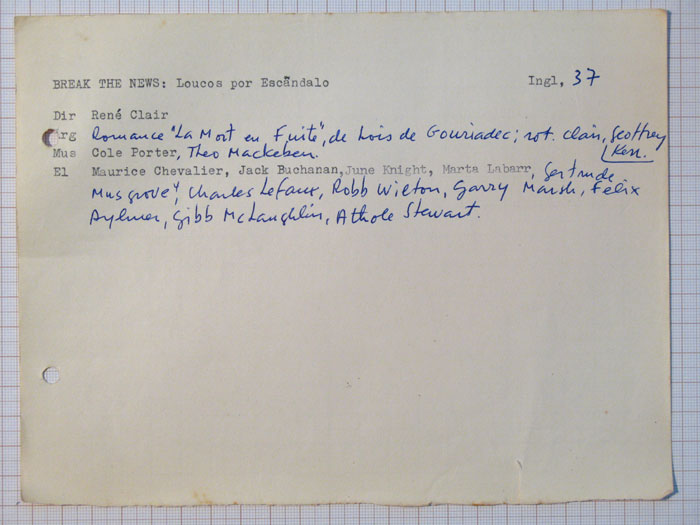 BREAK THE NEWS: Loucos por Escândalo Ingl, 37
Dir René Clair
Arg Romance "La Mort en Fuite", de Loïs de Gouriadec; rot. Clair, Geoffrey
Kerr.
Mus Cole Porter, Theo Mackeben.
El Maurice Chevalier, Jack Buchanan, June Knight, Marta Labarr, Gertrude
Musgrove, Charles Lefaux, Robb Wilton, Garry Marsh, Felix
Aylmer, Gibb McLaughlin, Athole Stewart.